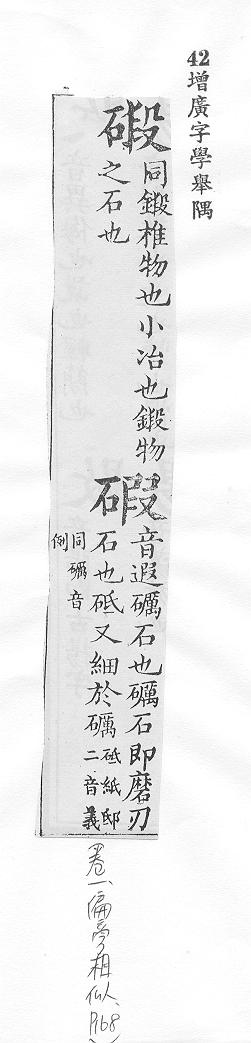 42增廣字學舉隅
碫
同鍛椎物也小冶也鍛物
之石也
碬
音遐礪石也礪石即磨刃
石也砥又細於礪
砥紙邸
二音義
同礪音
例
卷一、偏旁相似、P.68